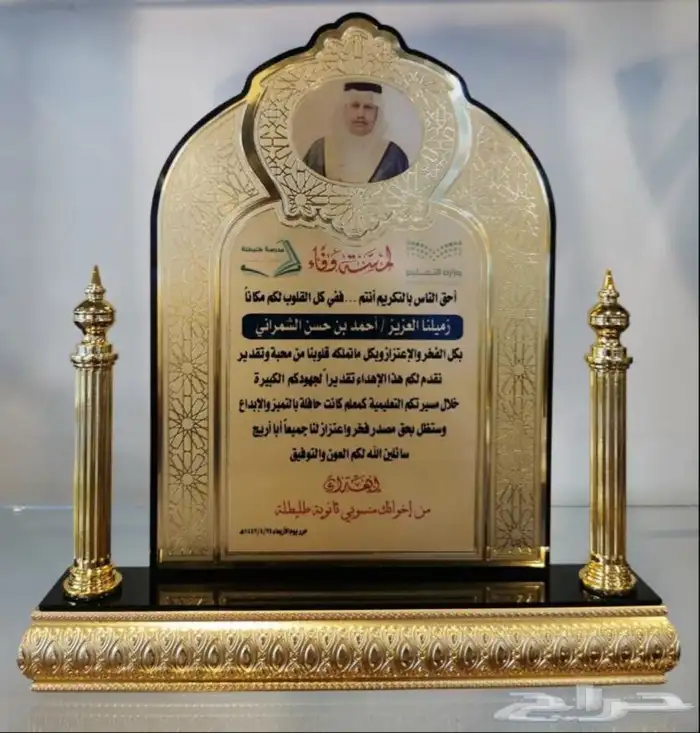 مدرسة طليطلة
لمسة وفاء
وزارة التعليم
أحق الناس بالتكريم أنتم ... ففي كل القلوب لكم مكاناً
زميلنا العزيز / أحمد بن حسن الشمراني
بكل الفخر والإعتزاز وبكل ماتملكه قلوبنا من محبة وتقدير
نقدم لكم هذا الإهداء تقديراً لجهودكم الكبيرة
خلال مسيرتكم التعليمية كمعلم كانت حافلة بالتميز والإبداع
وستظل بحق مصدر فخر واعتزاز لنا جميعاً أبا أريج
سائلين الله لكم العون والتوفيق
إهداء
من إخوانك منسوبي ثانوية طليطلة
حرر يوم الأربعاء
حراج